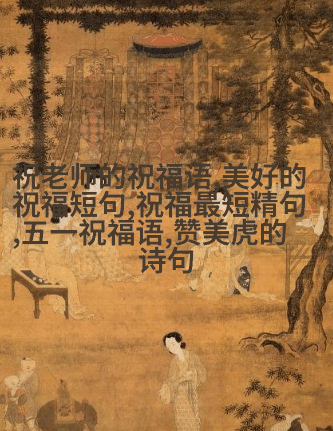 祝老师的祝福语 美好的
祝福短句,祝福最短精句
,五一祝福语,赞美虎的
诗句